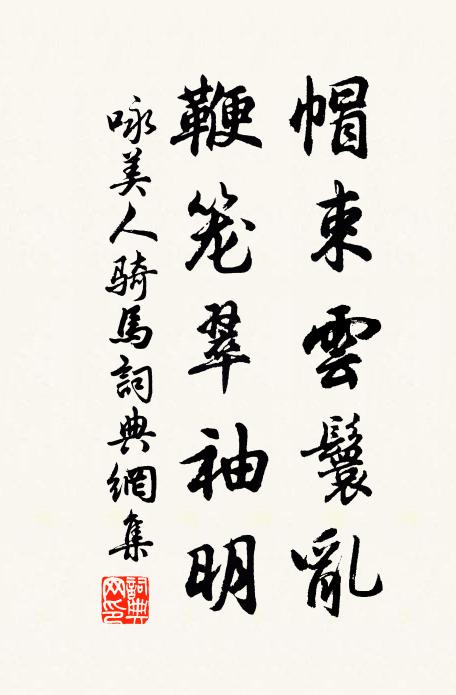 帽束雲鬟亂
鞭笼翠袖明
咏美人騎馬詞典網集
詞典网印